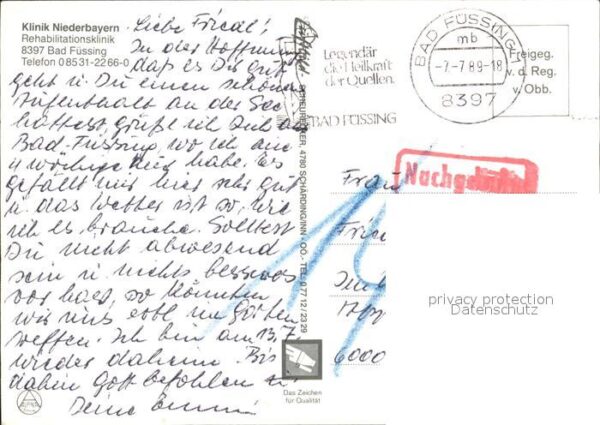 Klinik Niederbayern
Rehabilitationsklinik
8397 Bad Füssing
Telefon 08531-2266-0
Liebe Friedl!
In der Hoffnung
daß es Dir gut
geht u. Du einen schönen
Aufenthalt an der See
hattest, grüße ich Dich aus
Bad-Füssing, wo ich eine
4 wöchige Kur habe. Es
gefällt mir hier sehr gut
u. das Wetter ist so, wie
ich es brauche. Solltest
Du nicht abwesend
sein u. nichts besseres
vor hast, so könnten
wir uns evtl. im
treffen. Ich bin am 13.7.
wieder daheim. Bis
dahin Gott befohlen
Deine Emmi
Legendär
die Heilkraft
der Quellen.
BAD FÜSSING
BAD FÜSSING 1
mb
-7.-7.89-18
8397
Freigeg.
v. d. Reg.
v. Obb.
4780 SCHÄRDING/INN · OÖ. · TEL. 0 77 12 / 23 29
Nachgebühr
Frau
6000
privacy protection
Datenschutz
Das Zeichen
für Qualität